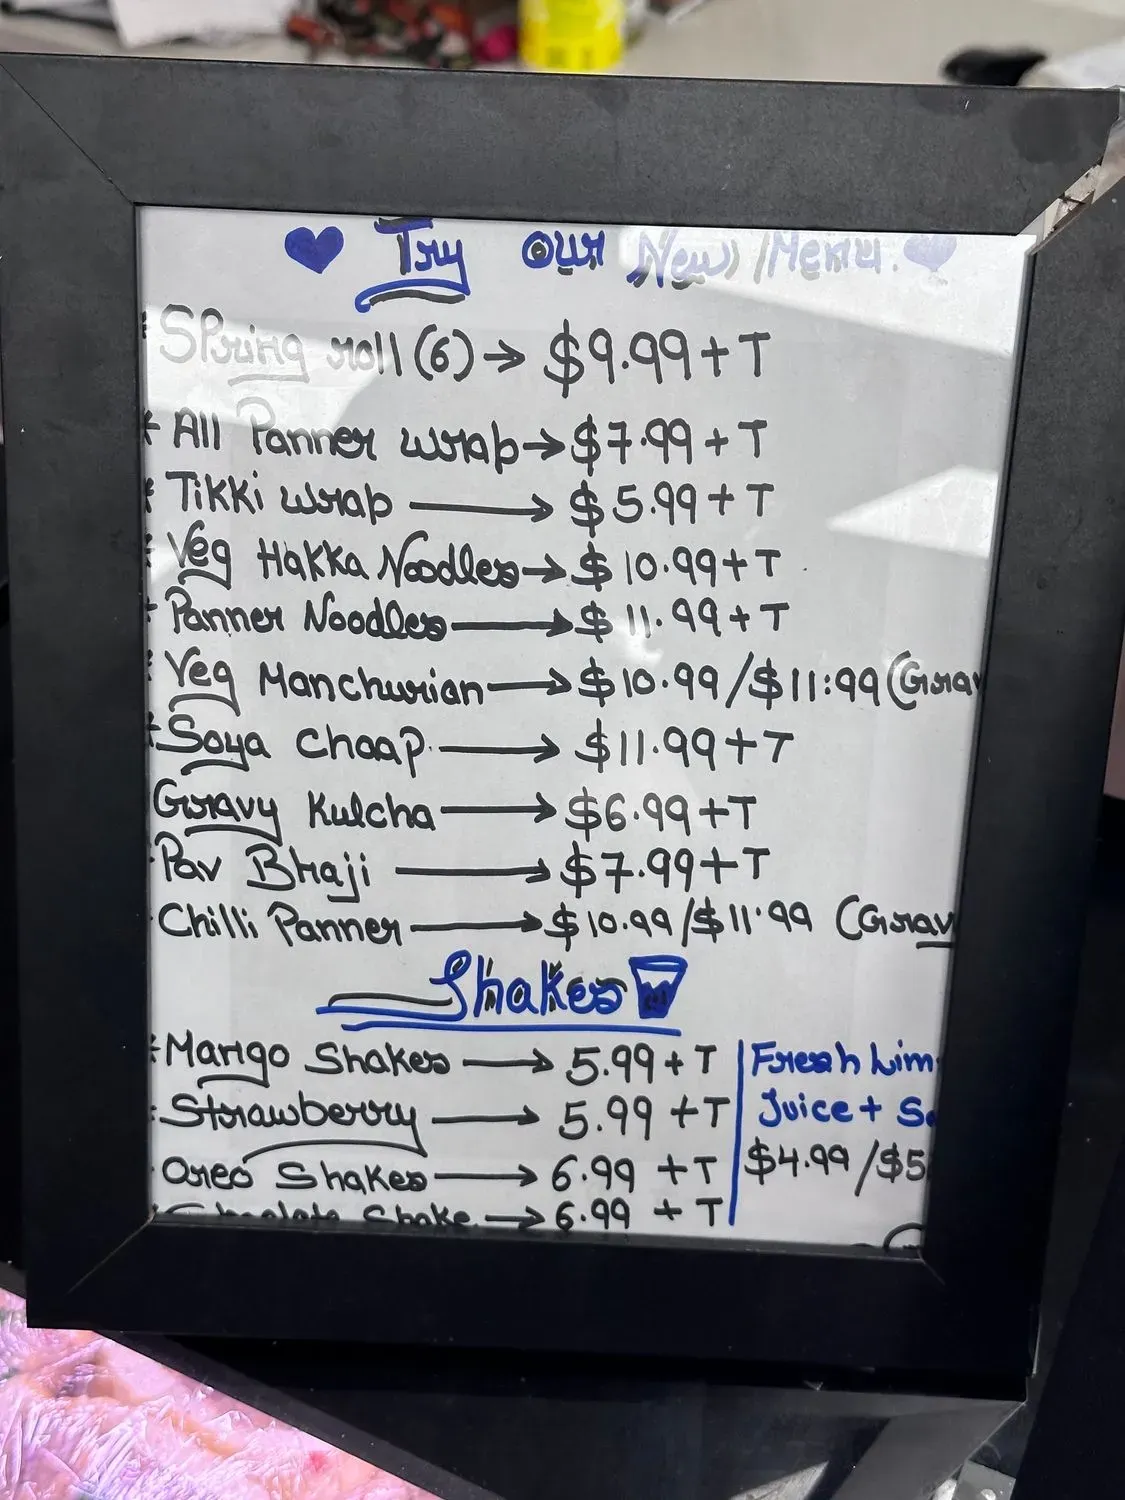 Try Our New Menu.
Spring roll (6) → $9.99 + T
* All Panner wrap → $7.99 + T
* Tikki wrap → $5.99 + T
* Veg Hakka Noodles → $10.99 + T
* Panner Noodles → $11.99 + T
* Veg Manchurian → $10.99 / $11:99 (Grav
* Soya Chaap. → $11.99 + T
Gravy Kulcha → $6.99 + T
Pav Bhaji → $7.99 + T
Chilli Panner → $10.99 / $11.99 (Grav
Shakes
* Mango Shakes → 5.99 + T
Strawberry → 5.99 + T
Oreo Shakes → 6.99 + T
Chocolate Shake → 6.99 + T
Fresh Lim
Juice + So
$4.99 / $5